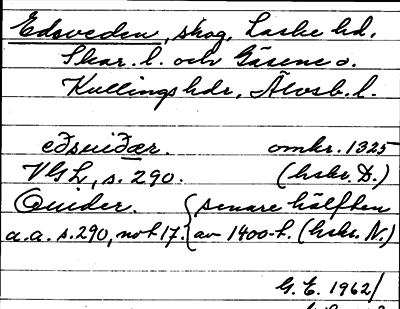 Edsveden, skog, Laske hd,
Skar. l. och Gäsene o.
Kullings hdr, Älvsb. l.
eðsuiðær. omkr. 1325
VGL, s. 290. (hskr. D.)
Quider. senare hälften
a.a. s. 290, not 17. av 1400-t. (hskr. N.)
G. E. 1962/